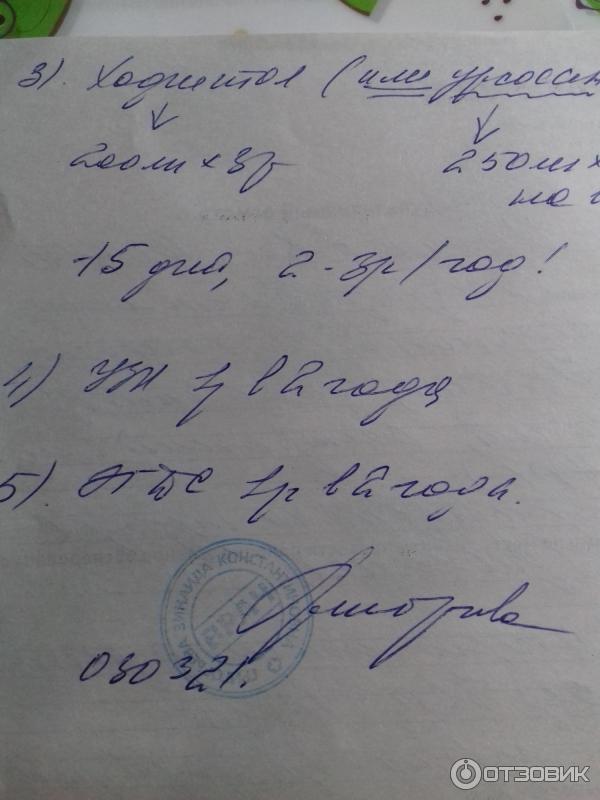 3). Ходжетол (или урсосан
200мг х 3р 250мг х
на
-15 дней, 2-3р/год!
4) УЗИ 1р в 2 года
5). ФГДС 1р в 2 года.
ЗИНАИДА КОНСТАНТИНОВНА
ВРАЧ
030321.
ОТЗОВИК